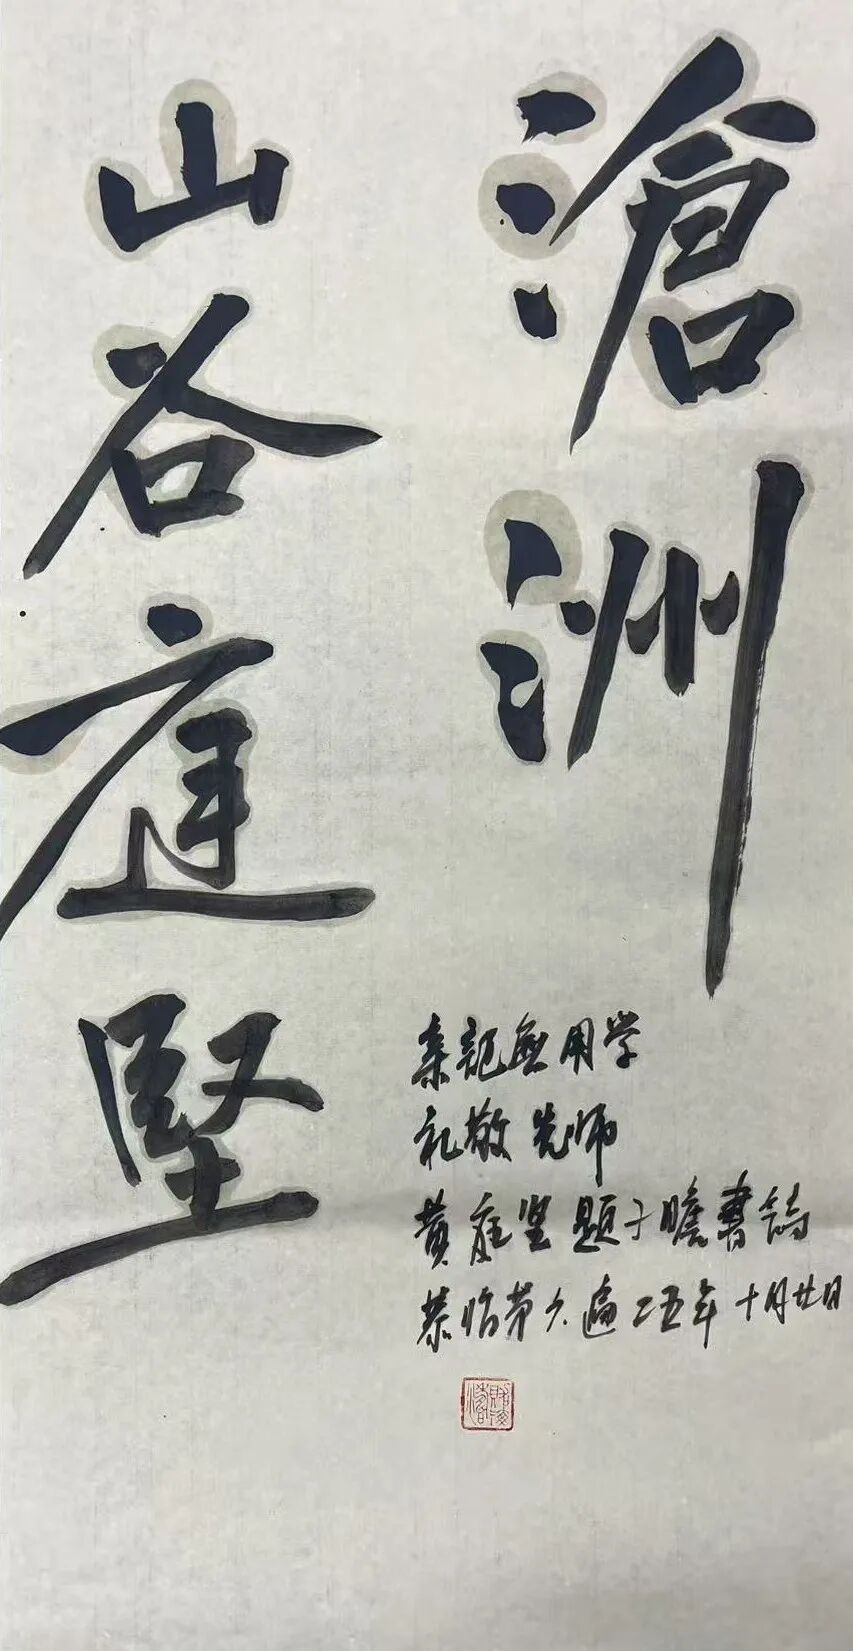 滄洲
山谷庭堅
秦記無用学
礼敬先师
黄庭坚题子瞻書詩
恭临第六遍二五年十月廿日